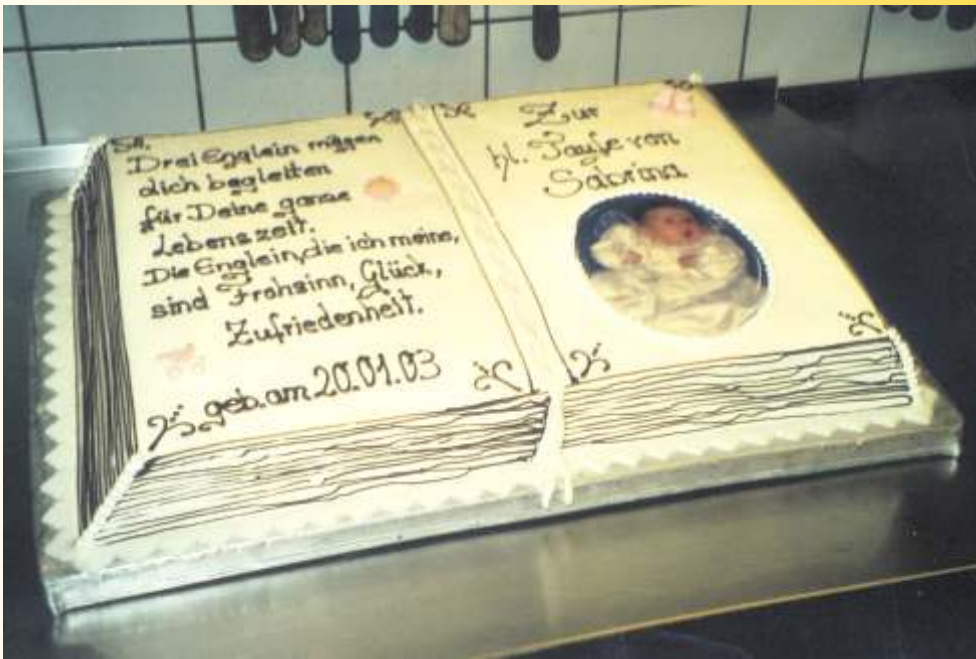 Drei Englein mögen
dich begleiten
für Deine ganze
Lebenszeit.
Die Englein, die ich meine,
sind Frohsinn, Glück,
Zufriedenheit.
geb. am 20.01.03
Zur
hl. Taufe von
Sabrina